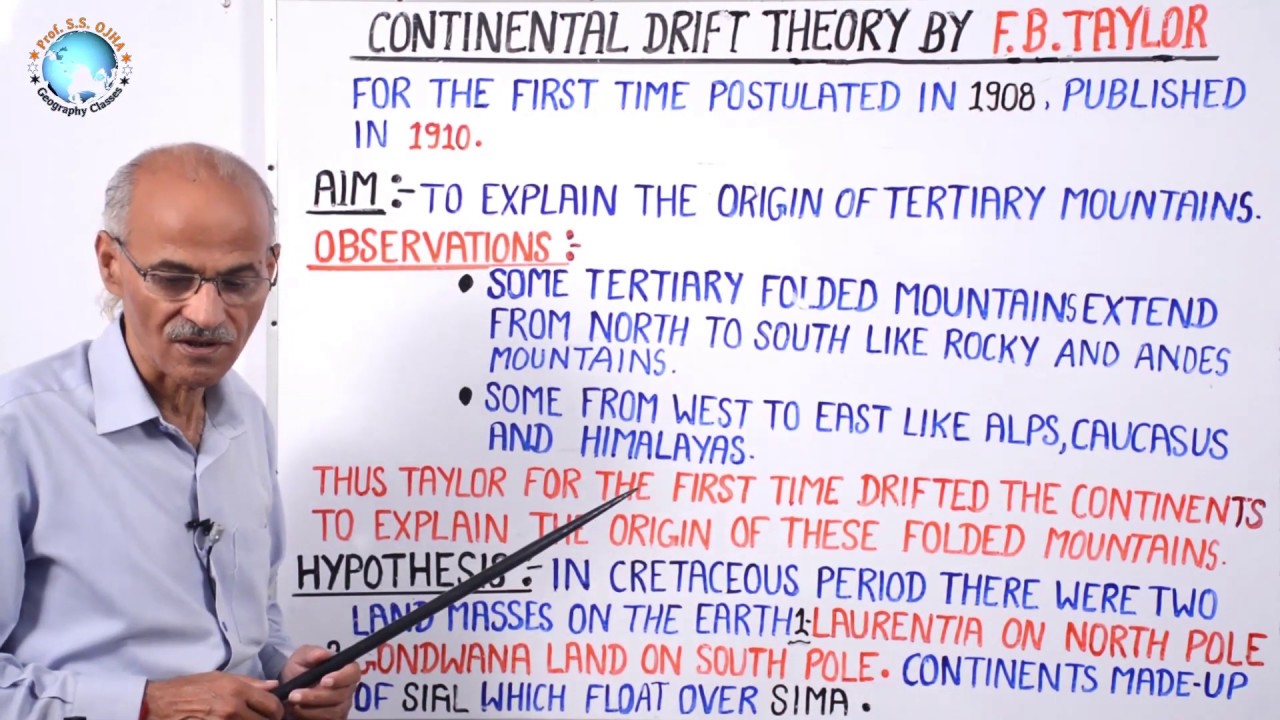 Prof. S.S. OJHA
Geography Classes
CONTINENTAL DRIFT THEORY BY F.B.TAYLOR
FOR THE FIRST TIME POSTULATED IN 1908, PUBLISHED
IN 1910.
AIM:- TO EXPLAIN THE ORIGIN OF TERTIARY MOUNTAINS.
OBSERVATIONS:-
• SOME TERTIARY FOLDED MOUNTAINS EXTEND
FROM NORTH TO SOUTH LIKE ROCKY AND ANDES
MOUNTAINS.
• SOME FROM WEST TO EAST LIKE ALPS, CAUCASUS
AND HIMALAYAS.
THUS TAYLOR FOR THE FIRST TIME DRIFTED THE CONTINENTS
TO EXPLAIN THE ORIGIN OF THESE FOLDED MOUNTAINS.
HYPOTHESIS:- IN CRETACEOUS PERIOD THERE WERE TWO
LAND MASSES ON THE EARTH 1-LAURENTIA ON NORTH POLE
GONDWANA LAND ON SOUTH POLE. CONTINENTS MADE-UP
OF SIAL WHICH FLOAT OVER SIMA.